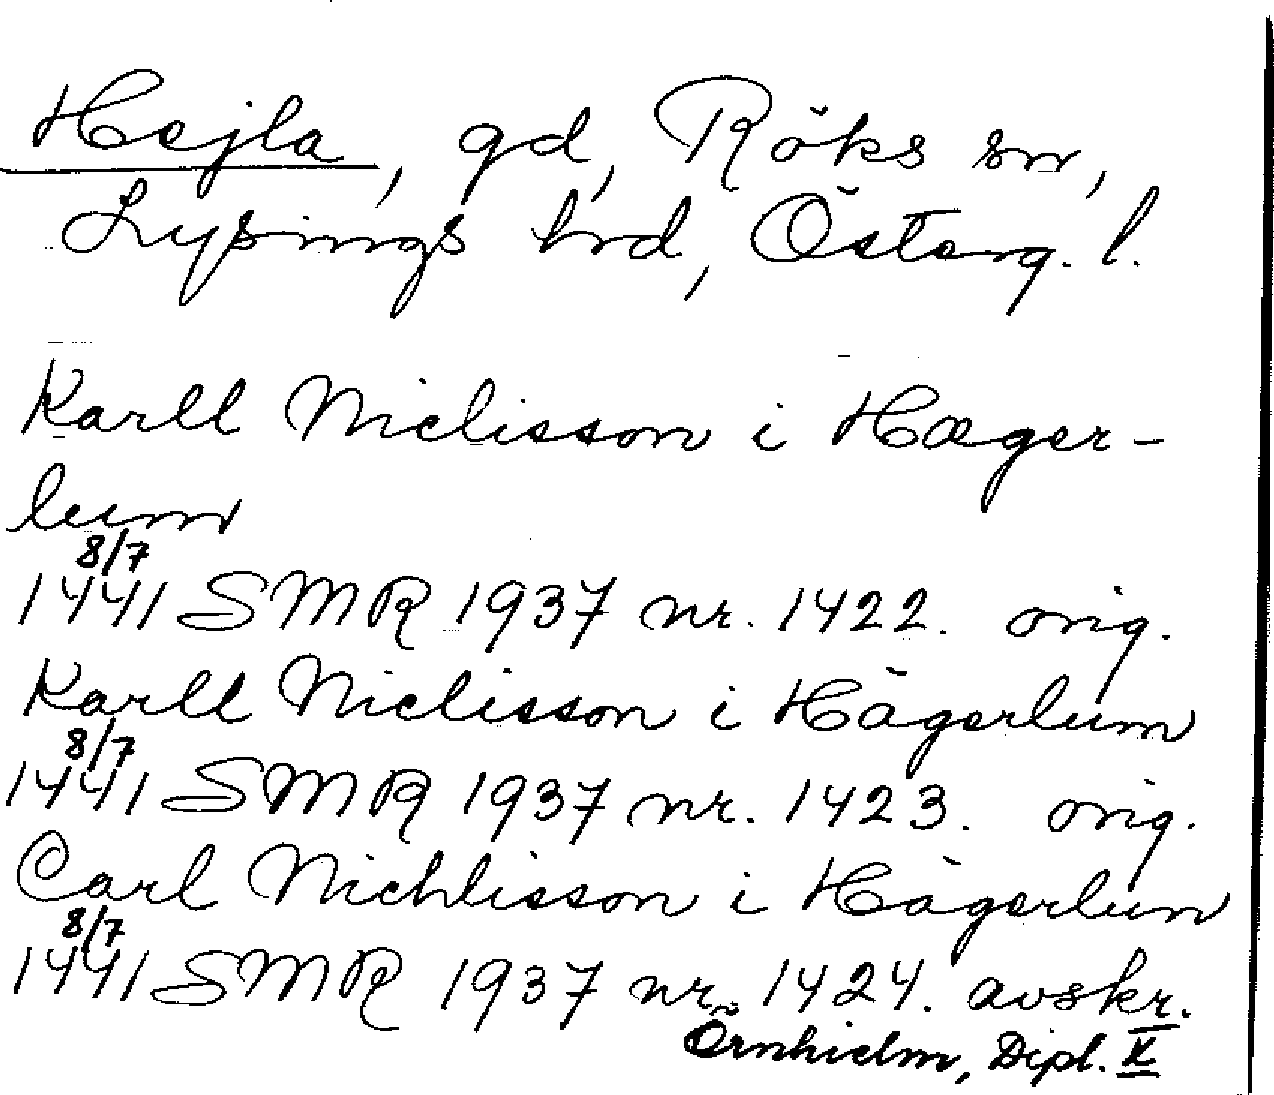 Hejla, gd, Röks sn,
Lysings hrd, Österg. l.
Karll Niclisson i Hæger-
lum
8/7
1441 SMR 1937 nr. 1422. orig.
Karll Niclisson i Hägerlum
8/7
1441 SMR 1937 nr. 1423. orig.
Carl Nichlisson i Hägerlum
8/7
1441 SMR 1937 nr. 1424. avskr.
Örnhielm, Dipl. V